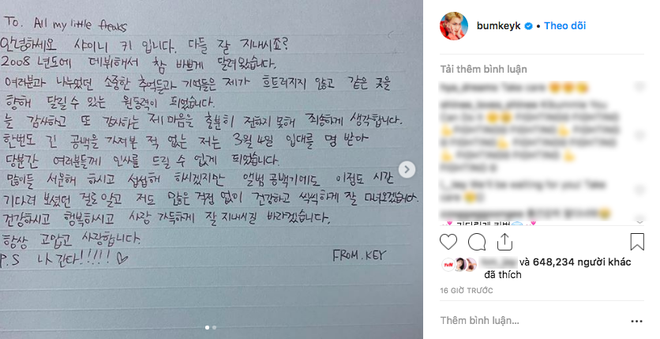 To. All my little freaks
안녕하세요 샤이니 키 입니다. 다들 잘 지내시죠?
2008 년도에 데뷔해서 참 바쁘게 달려왔습니다.
여러분과 나누었던 소중한 추억들과 기억들은 제가 흐트러지지 않고 같은 곳을
향해 달릴 수 있는 원동력이 되었습니다.
늘 감사하고 또 감사하는 제 마음을 충분히 전하지 못해 죄송하게 생각합니다.
한번도 긴 공백을 가져본 적 없는 저는 3월 4일 입대를 명 받아
당분간 여러분들께 인사를 드릴 수 없게 되었습니다.
많이들 서운해 하시고 섭섭해 하시겠지만 앨범 공백기에도 이정도 시간
기다려 보셨던 걸로 알고 저도 많은 걱정 없이 건강하고 씩씩하게 잘 다녀오겠습니다.
건강하시고 행복하시고 사랑 가득하게 잘 지내시길 바라겠습니다.
항상 고맙고 사랑합니다.
P.S 나 간다!!!!! ♡
FROM. KEY
bumkeyk • Theo dõi
Tải thêm bình luận
và 648,234 người khác
đã thích
16 GIỜ TRƯỚC
Thêm bình luận...